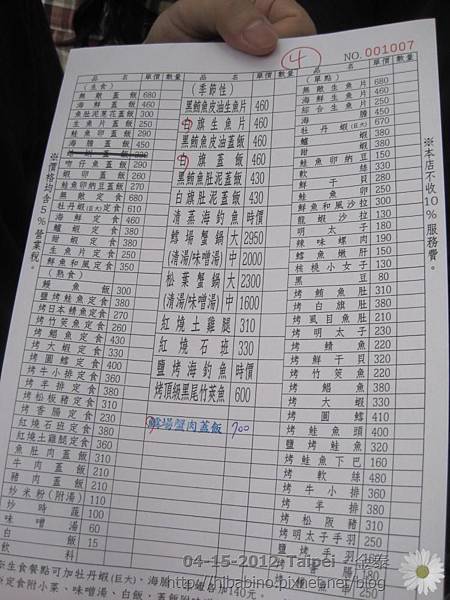 4
NO. 001007
品 名 單價 數量
(生食)
無敵蓋飯 680
海鮮蓋飯 460
魚肚泥菓花蓋飯 300
生魚片蓋飯 250
鮭魚卵蓋飯 290
海膽蓋飯 450
吻仔魚蓋飯 290
蝦卵蓋飯 260
鮭魚卵納豆蓋飯 260
無敵定食 680
牡丹蝦(巨大)定食 610
海鮮定食 460
鱸蝦定食 380
甜蝦定食 380
生魚片定食 250
鮮魚和風定食 350
(熟食)
鰻魚飯 300
鹽烤鮭魚定食 360
烤日本鯖魚定食 270
烤竹筴魚定食 260
烤鯧魚定食 270
烤大蝦定食 330
烤圓鱈定食 400
烤牛小排定食 360
烤羊排定食 380
烤松板豬定食 310
烤香腸定食 230
紅燒石班定食 380
紅燒土雞腿定食 360
魚肚肉蓋飯 210
牛肉蓋飯 210
豬肉蓋飯 210
炒米粉(附湯) 110
炒時蔬 100
味噌湯 60
白飯 15
飲料
品 名 單價 數量
(季節性)
黑鮪魚皮油生魚片 460
白旗生魚片 460
黑鮪魚皮油蓋飯 460
白旗蓋飯 460
黑鮪魚肚泥蓋飯 430
白旗肚泥蓋飯 430
清蒸海釣魚 時價
鱈場蟹鍋 大 2950
(清湯/味噌湯) 中 2000
松葉蟹鍋 大 2300
(清湯/味噌湯) 中 1600
紅燒土雞腿 310
紅燒石班 330
鹽烤海釣魚 時價
烤頂級黑尾竹筴魚 600
鱈場蟹肉蓋飯 700
品 名 單價 數量
(單點)
無敵生魚片 680
海鮮生魚片 450
綜合生魚片 250
海膽 450
牡丹蝦(巨大) 670
鱸蝦 380
甜蝦 380
鮭魚卵納豆 150
軟絲 280
鮮干貝 280
鮭魚卵 250
鮮魚和風沙拉 330
龍蝦沙拉 130
明太子 180
辣味螺肉 190
鱈魚嫩肝 150
核桃小女子 130
黑豆 80
烤鮪魚肚 310
烤白旗肚 380
烤虱目魚肚 210
烤明太子 230
烤鯖魚 220
烤鮮干貝 320
烤竹筴魚 220
烤鯧魚 380
烤大蝦 330
烤圓鱈 410
烤鮭魚頭 400
鹽烤鮭魚 320
烤鮭魚下巴 160
烤軟絲 480
烤牛小排 360
烤羊排 380
烤松阪豬 310
烤明太子手羽 250
鹽烤手羽 160
180
250
※價格均含5%營業稅。
※本店不收10%服務費。
※生食餐點可加牡丹蝦(巨大)、海膽
※定食附小菜、味噌湯、白飯
04-15-2012 Taipei
http://hibabino.pixnet.net/blog